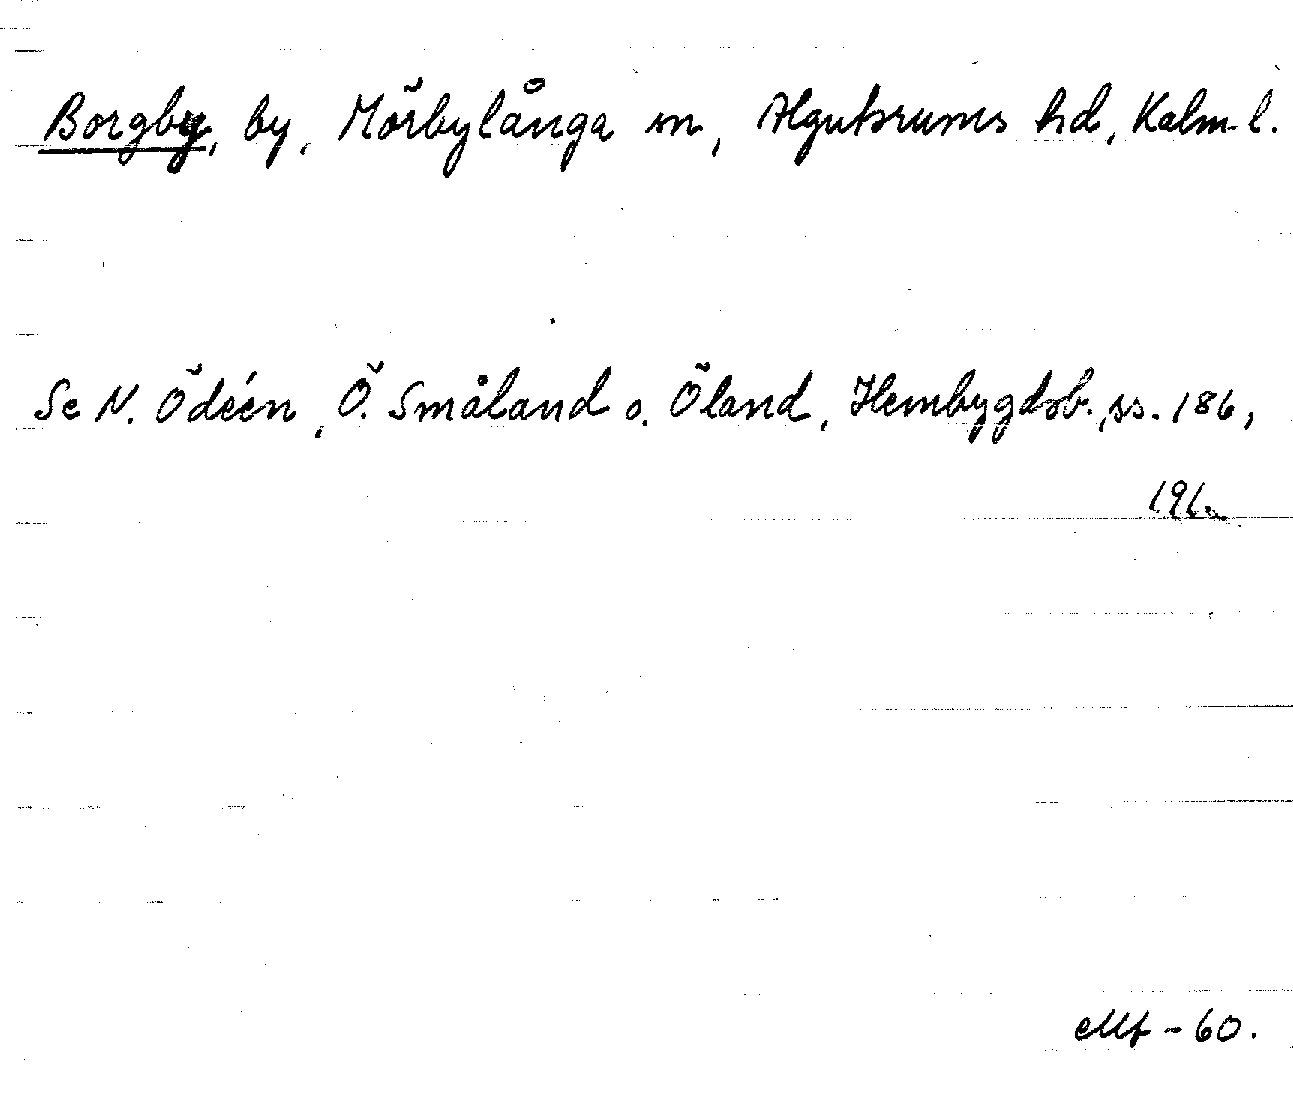 Borgby, by, Mörbylånga sn, Algutsrums hd, Kalm. l.
Se N. Ödéen, Ö. Småland o. Öland, Hembygdsb. ss. 186,
191.
-60.